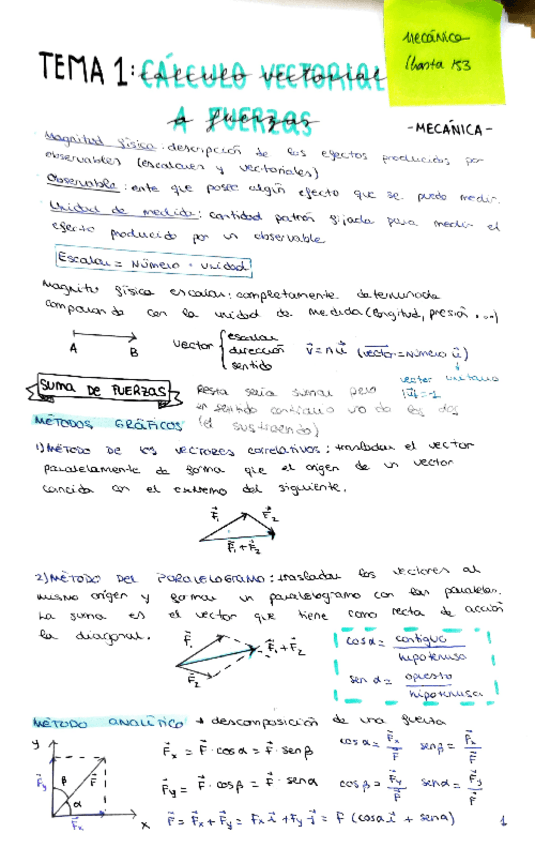 Mecánica
(hasta 153
TEMA 1: CÁLCULO VECTORIAL cálculo vectorial
A FUERZAS a fuerzas
-MECÁNICA-
Magnitud física: descripción de los efectos producidos por
observables (escalares y vectoriales)
Observable: ente que posee algún efecto que se puede medir.
Unidad de medida: cantidad patrón fijada para medir el
efecto producido por un observable
Escalar = Número · unidad
Magnitud física escalar: completamente determinada
comparando con la unidad de medida (longitud, presión ...)
A B
vector { escalar
dirección
sentido
v⃗ = n u⃗ (vector = número u⃗)
vector unitario
|u⃗| = 1
SUMA DE FUERZAS
Resta sería sumar pero
en sentido contrario uno de los dos
(el sustraendo)
MÉTODOS GRÁFICOS
1) MÉTODO DE los vectores correlativos: trasladar el vector
paralelamente de forma que el origen de un vector
coincida con el extremo del siguiente.
F⃗₁ F⃗₂
F⃗₁ + F⃗₂
2) MÉTODO DEL PARALELOGRAMO: trasladar los vectores al
mismo origen y formar un paralelogramo con las paralelas.
La suma es el vector que tiene como recta de acción
la diagonal.
F⃗₁
F⃗₁ + F⃗₂
F⃗₂
cos α = contiguo / hipotenusa
sen α = opuesto / hipotenusa
MÉTODO ANALÍTICO → descomposición de una fuerza
y
F⃗y β F⃗
α
F⃗x x
F⃗x = F⃗ · cos α = F⃗ · sen β cos α = F⃗x / F⃗ sen β = F⃗x / F⃗
F⃗y = F⃗ · cos β = F⃗ · sen α cos β = F⃗y / F⃗ sen α = F⃗y / F⃗
F⃗ = F⃗x + F⃗y = Fx i⃗ + Fy j⃗ = F (cos α i⃗ + sen α)
1